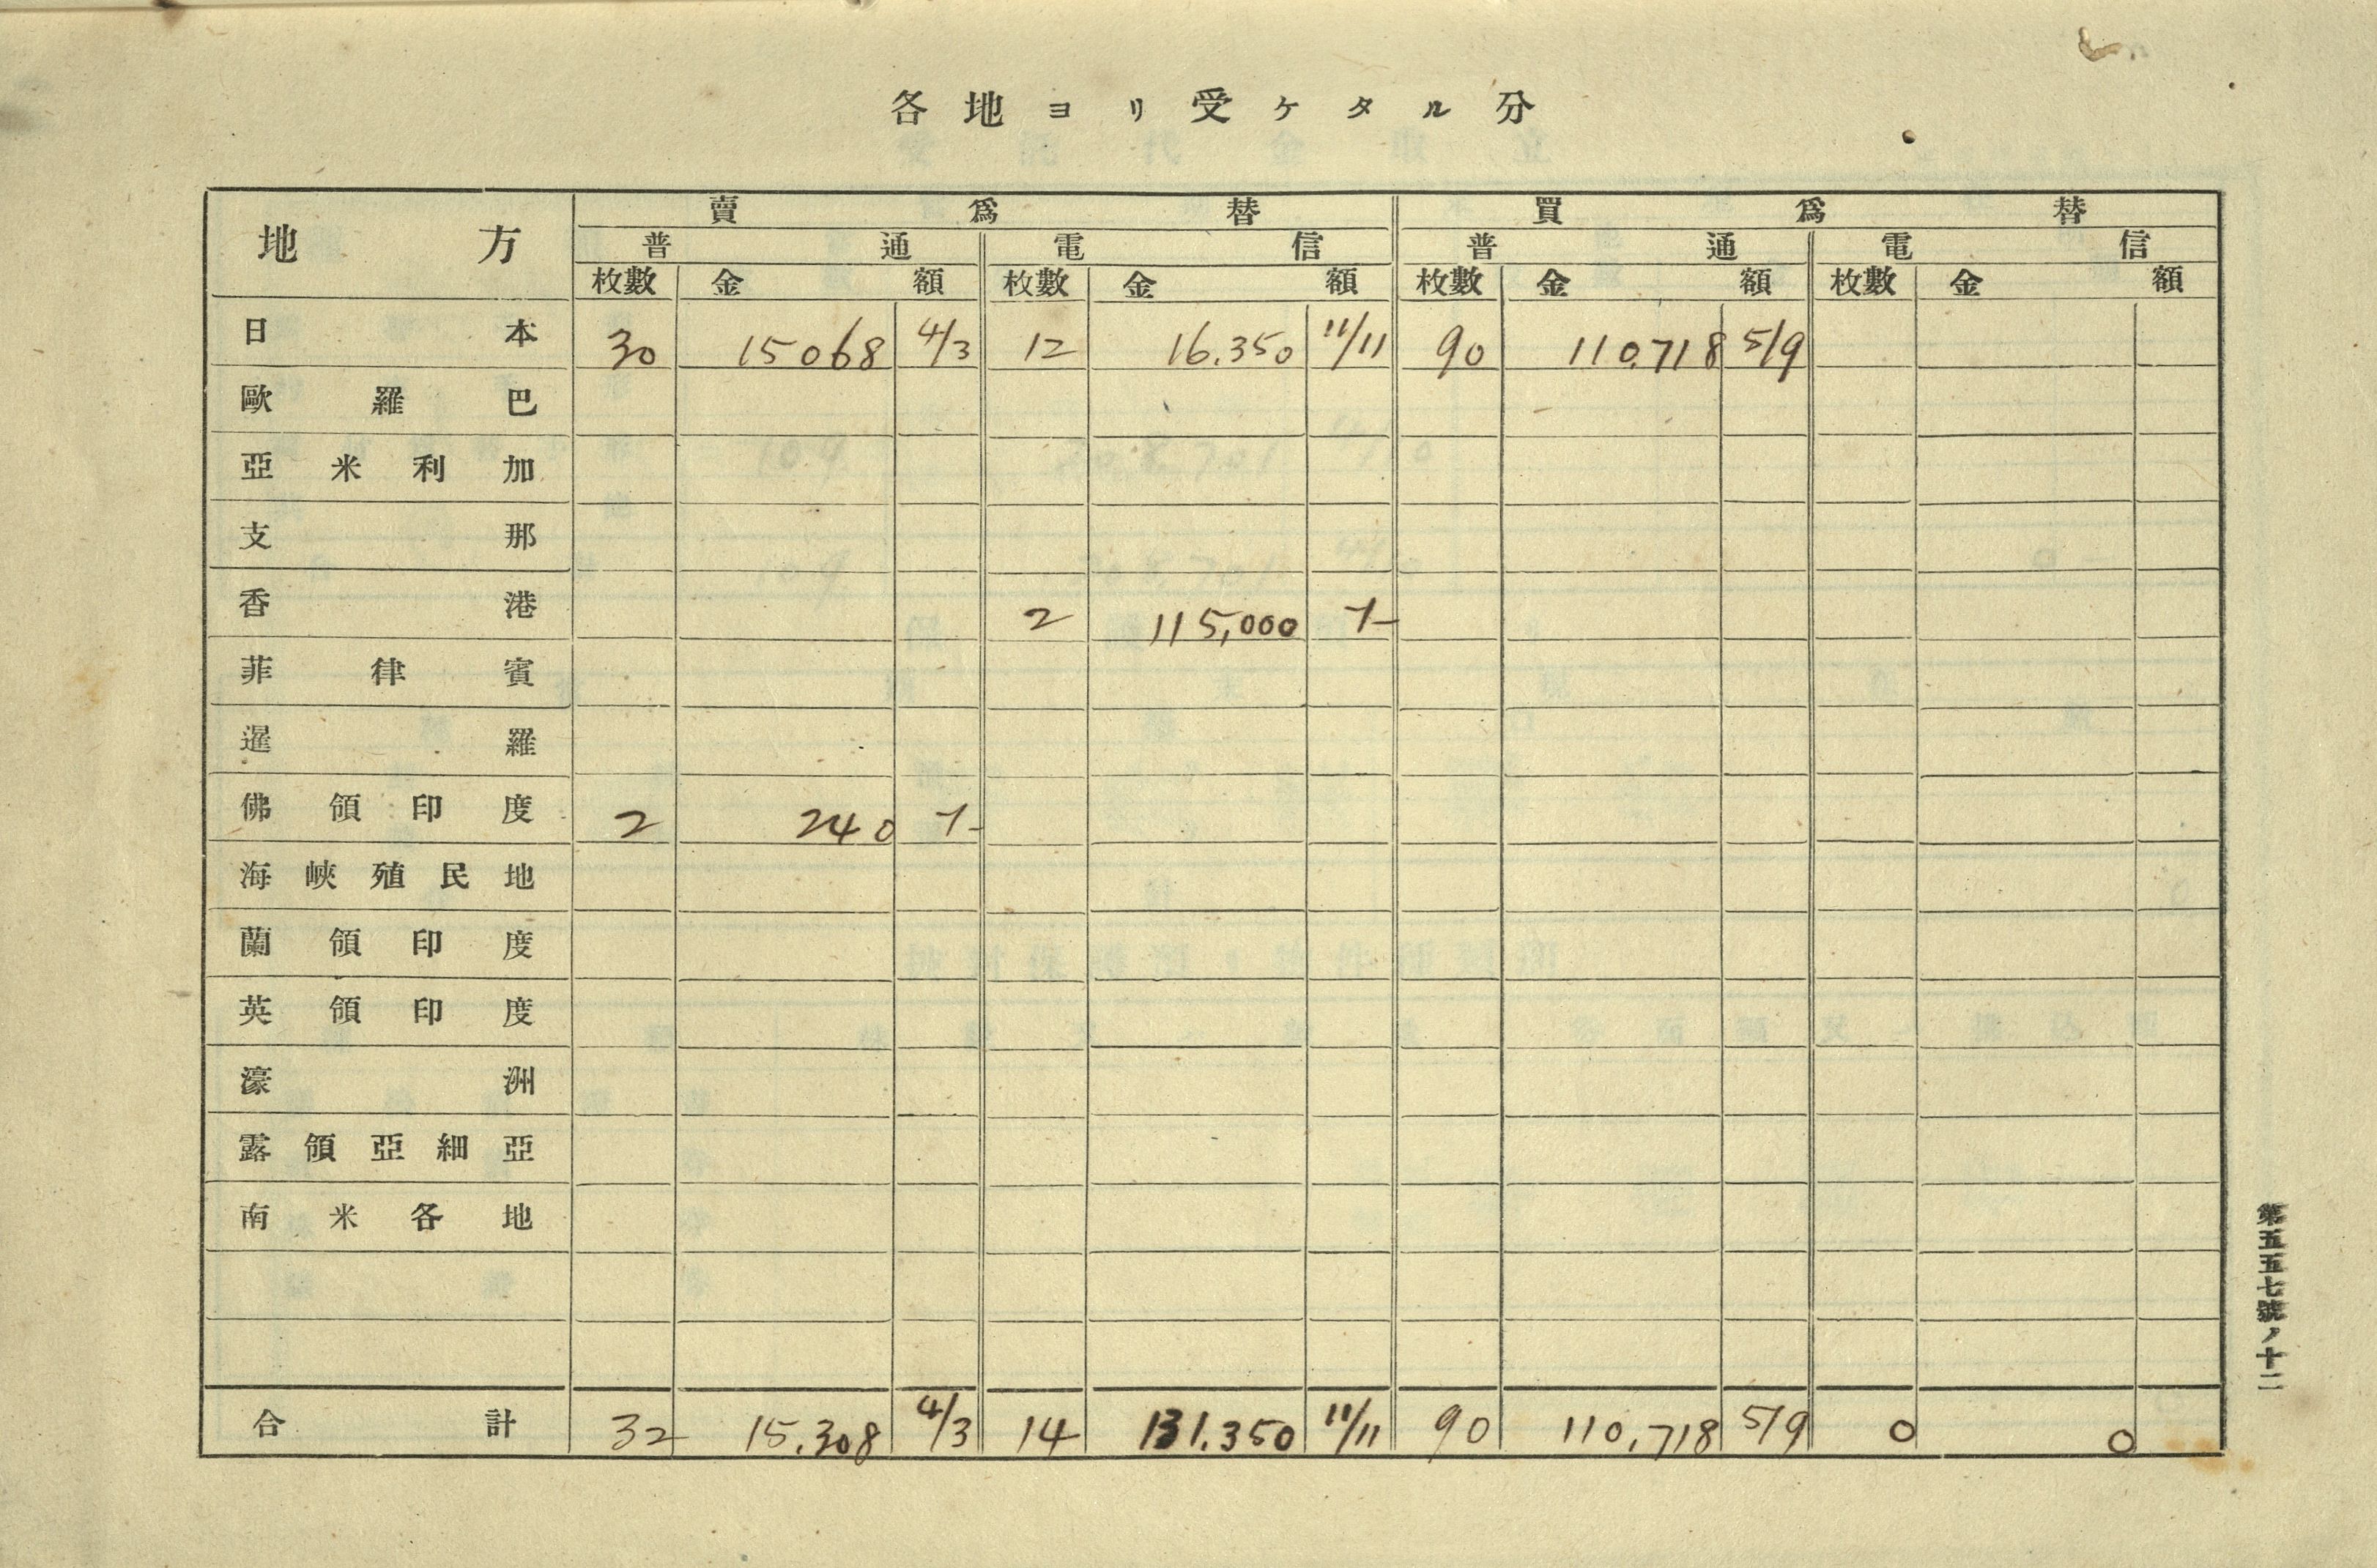 各地ヨリ受ケタル分
地方 賣爲替 買爲替
普通 電信 普通 電信
枚數 金額 枚數 金額 枚數 金額 枚數 金額
日本 30 15068 4/3 12 16.350 11/11 90 110.718 5/9
歐羅巴
亞米利加
支那
香港 2 115,000 -/-
菲律賓
暹羅
佛領印度 2 240 -/-
海峽殖民地
蘭領印度
英領印度
濠洲
露領亞細亞
南米各地
合計 32 15.308 4/3 14 131.350 11/11 90 110.718 5/9 0 0
第五五七號ノ十二